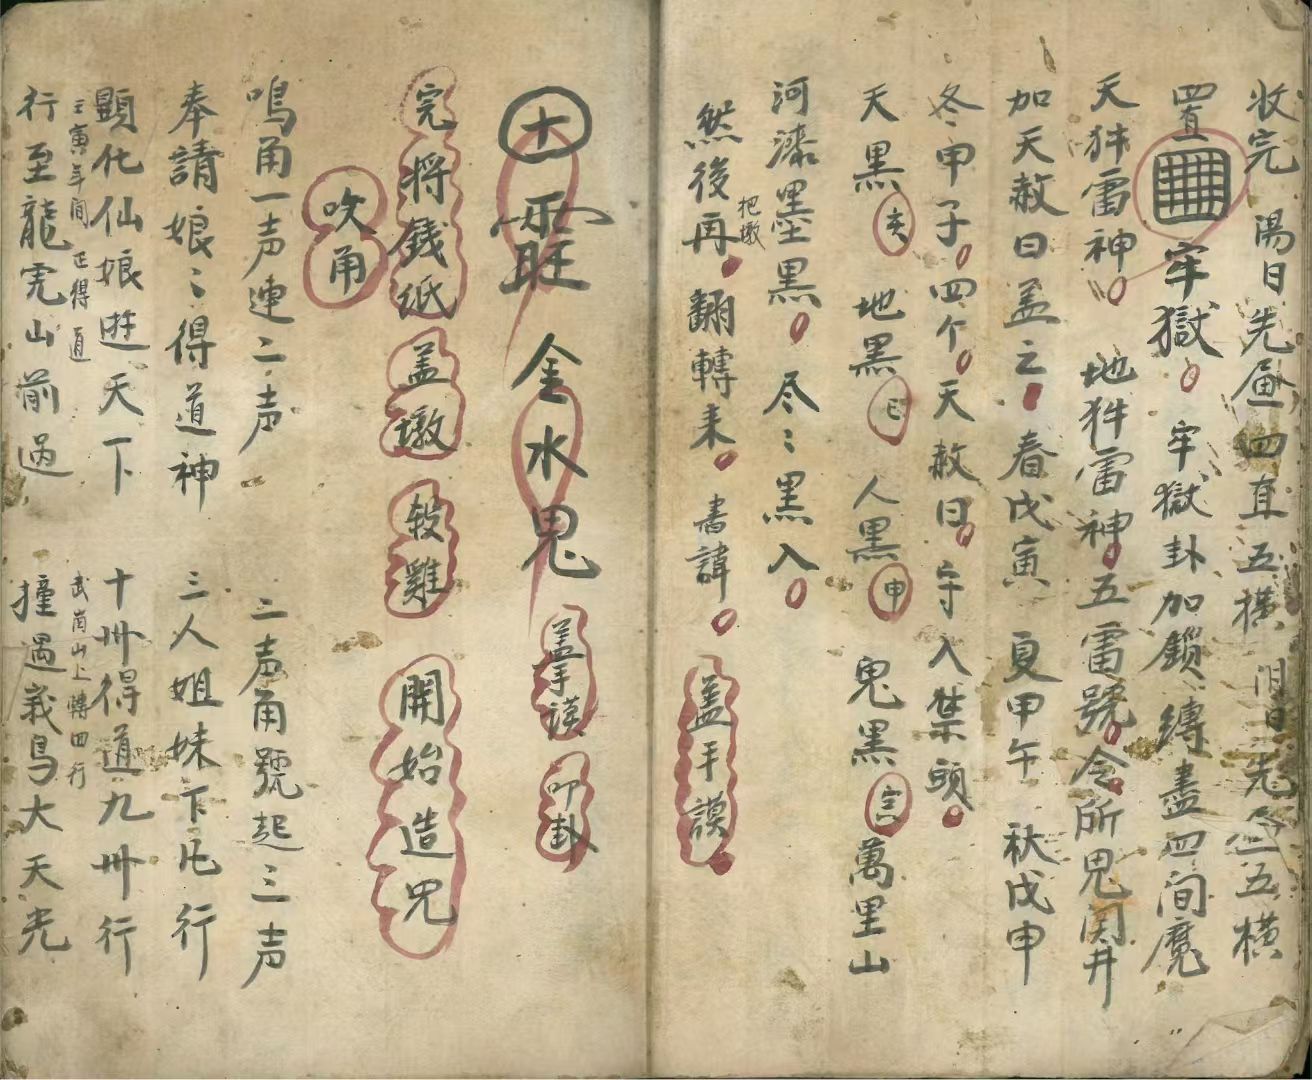 收完 陽日先畫四直五橫 陰日先画五橫
四直 牢獄 牢獄卦加鎖縛盡四間魔
天牪雷神 地牪雷神五雷號令所鬼関井
加天赦日盖之 春戊寅 夏甲午 秋戊申
冬甲子四个天赦日字入禁頭
天黑 地黑 人黑申 鬼黑 萬里山
河漆墨黑 尽〻黑入
然後再把墩翻轉来 書諱 盖手謨
十 金水鬼 盖掌謨 叩卦
完將錢紙盖墩 殺雞 開始造咒
吹角
鳴角一声連二声 二声角號起三声
奉請娘〻得道神 三人姐妹下凡行
顯化仙娘遊天下 十卅得道九卅行
壬寅年間正得道 武崗山上轉四行
行至龍虎山前過 撞遇峩烏大天光